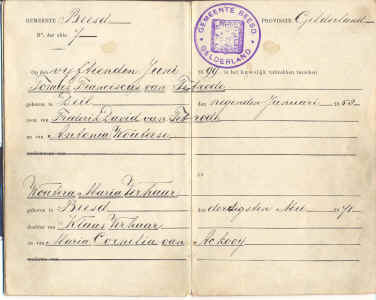 GEMEENTE Beesd
PROVINCIE Gelderland
GEMEENTE BEESD
GELDERLAND
No. der akte 7
Op den vijftienden Juni 1899 is het huwelijk voltrokken tusschen
Franciscus van
geboren te Deil den negenden Januari 18
zoon van Frederik David van
en van Antonia Wouterse
en
Woutera Maria Verhaar
geboren te Beesd den dertigsten Mei 1871
dochter van Klaas Verhaar
en van Maria Cornelia van Ackooy